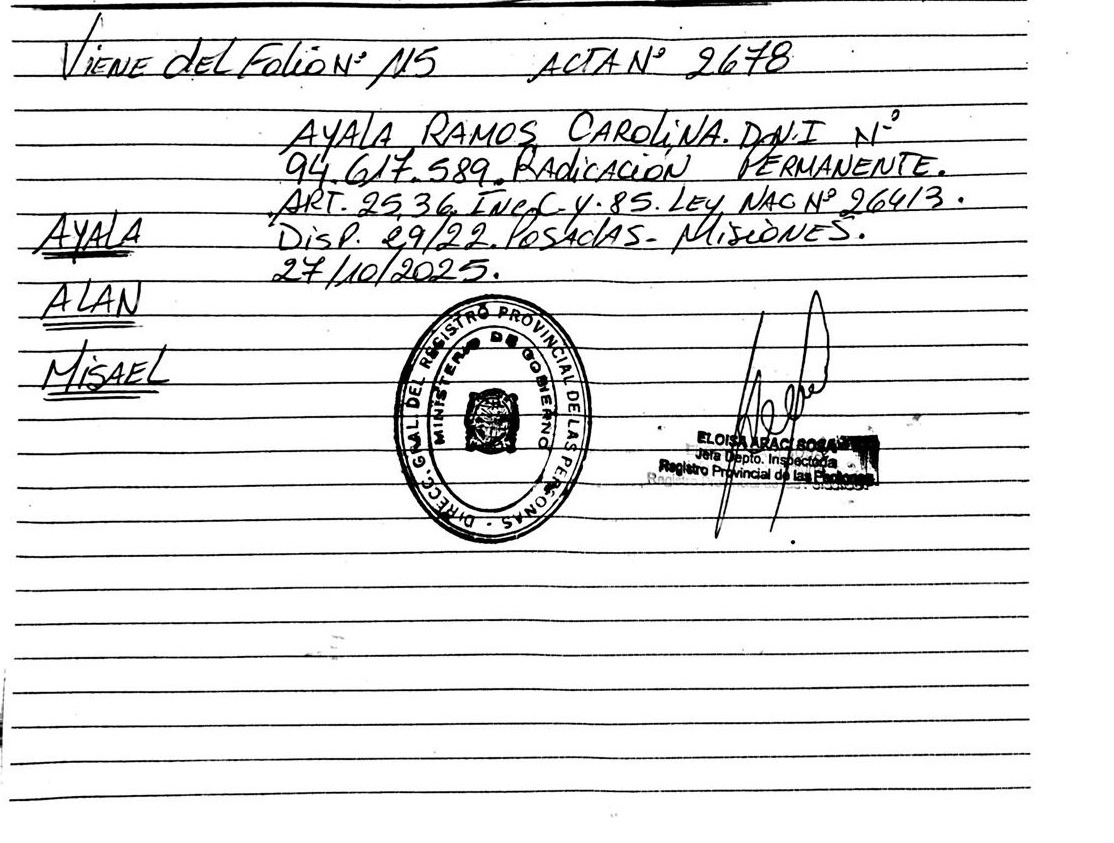 Viene del Folio N° 115 ACTA N° 2678
AYALA RAMOS, CAROLINA. D.N.I N°
94.617.589. RADICACIÓN PERMANENTE.
ART. 25,36. INC. C. Y. 85. LEY. NAC N° 26413.
DISP. 29/22. POSADAS- MISIONES.
27/10/2025.
AYALA
ALAN
MISAEL
DIRECC. GRAL. DEL REGISTRO PROVINCIAL DE LAS PERSONAS -
MINISTERIO DE GOBIERNO
ELOISA ARACI SOSA
Jefa Depto. Inspectoría
Registro Provincial de las Personas